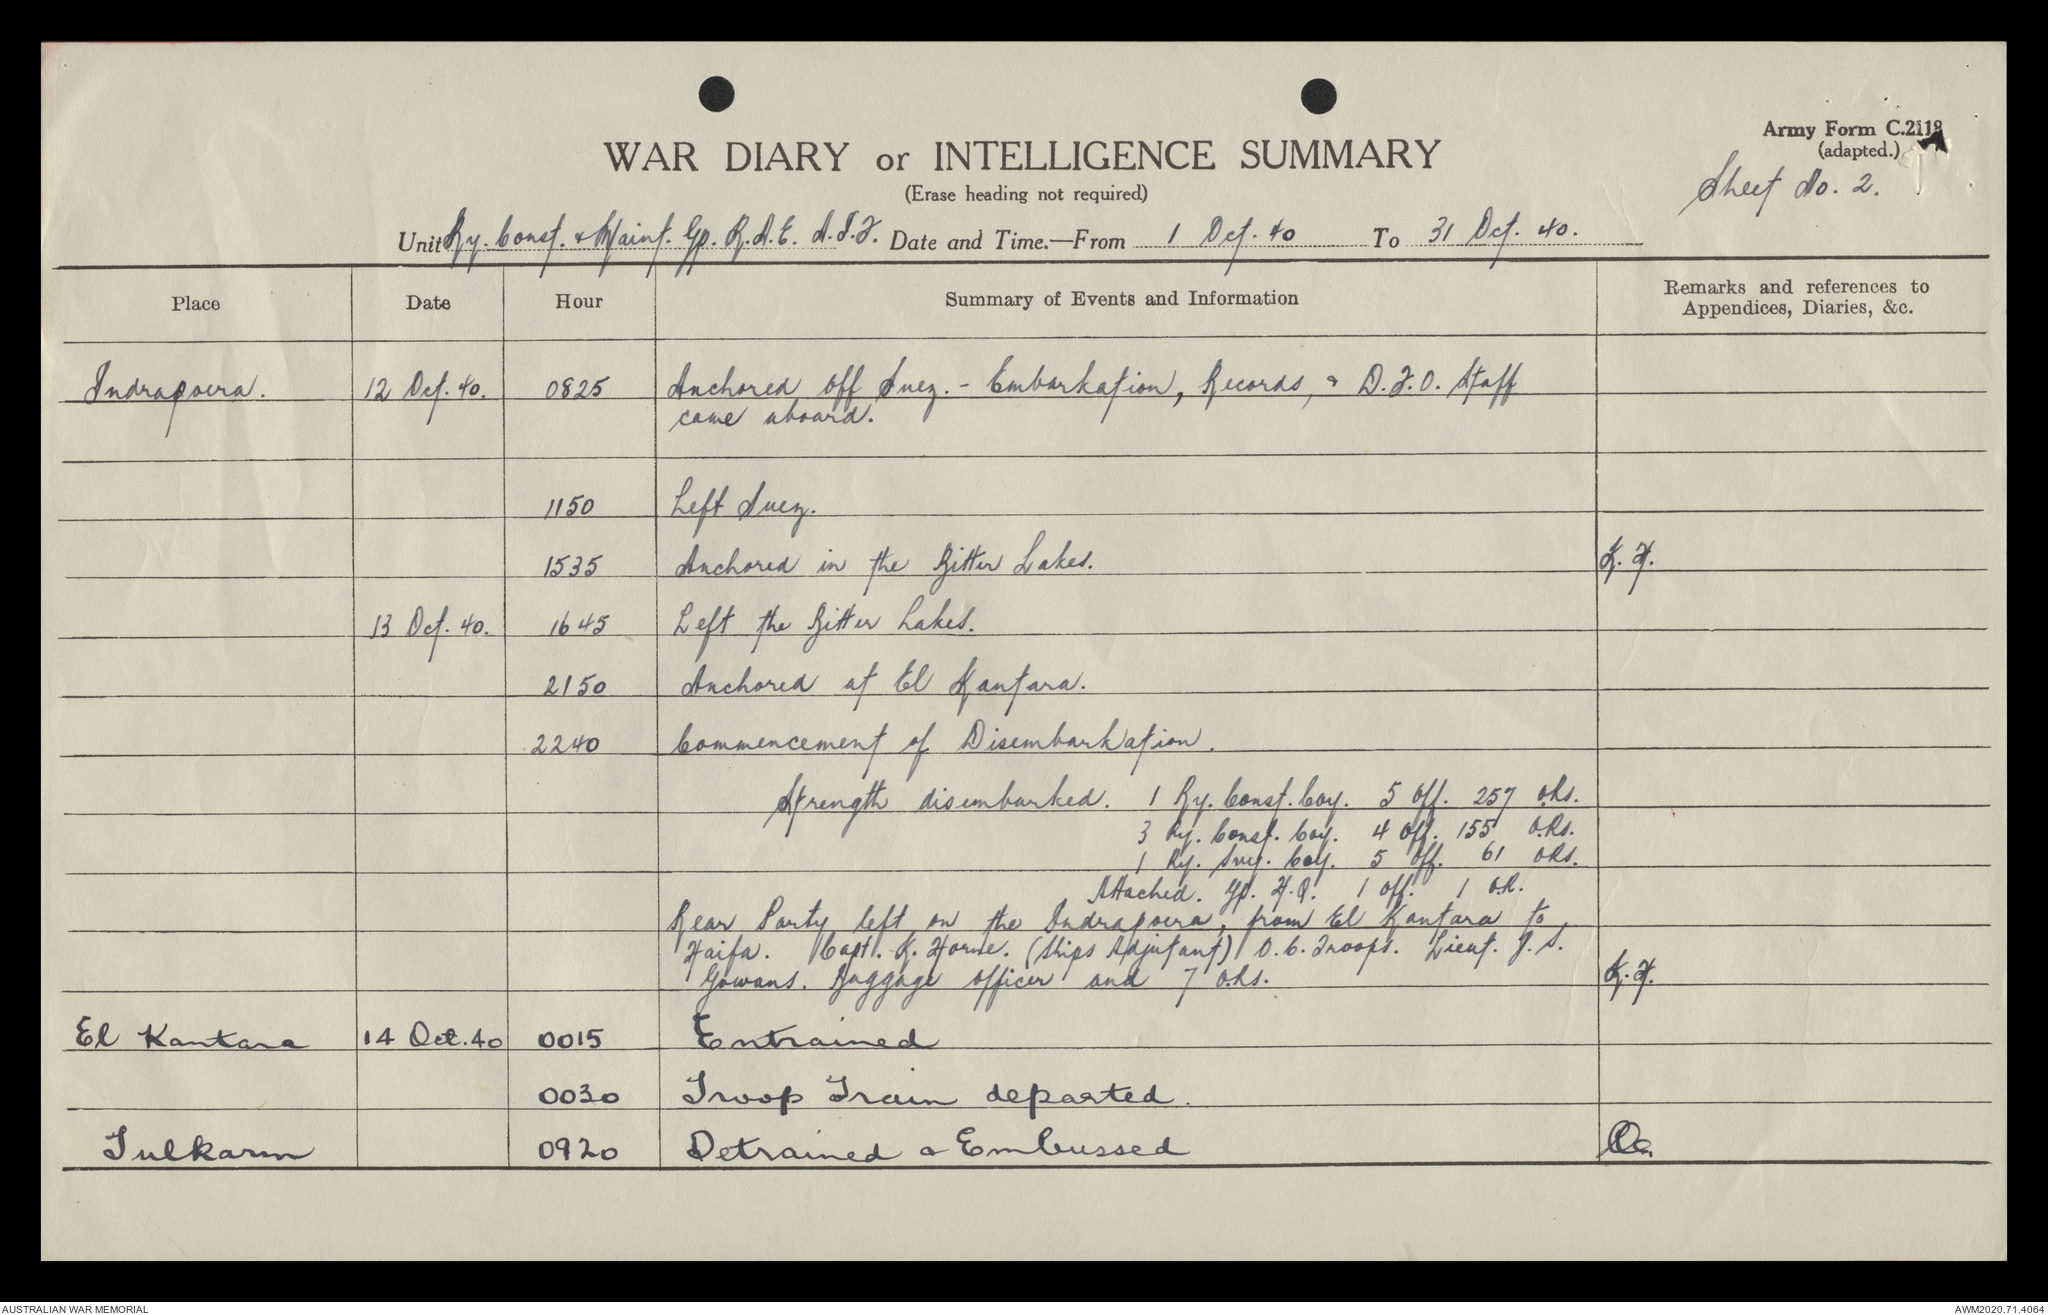 Army Form C.2118
(adapted.)
WAR DIARY or INTELLIGENCE SUMMARY
(Erase heading not required)
Sheet No. 2.
Unit Ry. Const. & Maint. Gp. R.A.E. A.I.F. Date and Time.—From 1 Oct. 40 To 31 Oct. 40.
Place Date Hour Summary of Events and Information Remarks and references to
Appendices, Diaries, &c.
Indrapoera. 12 Oct. 40. 0825 Anchored off Suez. - Embarkation, Records, & D.F.O. Staff
came aboard.
1150 Left Suez.
1535 Anchored in the Bitter Lakes. K.H.
13 Oct. 40. 1645 Left the Bitter Lakes.
2150 Anchored at El Kantara.
2240 Commencement of Disembarkation.
Strength disembarked. 1 Ry. Const. Coy. 5 Off. 257 ORs.
3 Ry. Const. Coy. 4 Off. 155 O.Rs.
1 Ry. Svy. Coy. 5 Off. 61 ORs.
Attached. Gp. H.Q. 1 Off. 1 O.R.
Rear Party left on the Indrapoera, from El Kantara to
Haifa. Capt. K. Horne. (Ships Adjutant) O.C. Troops. Lieut. J. S.
Gowans. Baggage officer and 7 ORs. K.H.
El Kantara 14 Oct. 40 0015 Entrained
0030 Troop Train departed.
Tulkarm 0920 Detrained & Embussed
AUSTRALIAN WAR MEMORIAL
AWM2020.71.4064